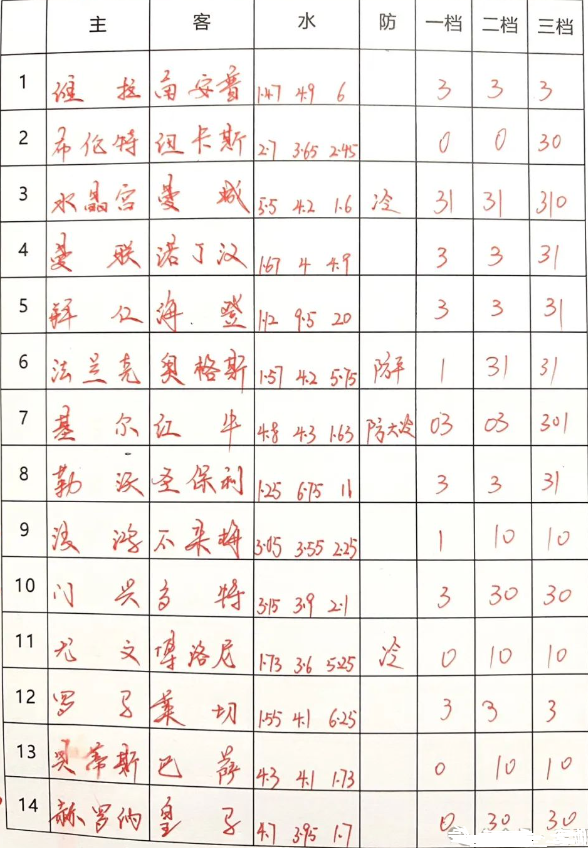 主 客 水 防 一档 二档 三档
1 维拉 南安普 1.47 4.9 6 3 3 3
2 布伦特 纽卡斯 2.7 3.65 2.45 0 0 30
3 水晶宫 曼城 5.5 4.2 1.6 冷 31 31 310
4 曼联 诺丁汉 1.67 4 4.9 3 3 31
5 拜仁 海登 1.12 9.5 20 3 3 31
6 法兰克 奥格斯 1.57 4.2 5.75 防平 1 31 31
7 基尔 红牛 4.8 4.3 1.63 防大冷 03 03 301
8 勒沃 圣保利 1.25 6.75 11 3 3 31
9 波鸿 不来梅 3.05 3.55 2.25 1 10 10
10 门兴 多特 3.15 3.9 2.1 3 30 30
11 尤文 博洛尼 1.73 3.6 5.25 冷 0 10 10
12 罗马 莱切 1.55 4.1 6.25 3 3 3
13 贝蒂斯 巴萨 4.3 4.1 1.73 0 10 10
14 赫罗纳 皇马 4.7 3.95 1.7 0 30 30